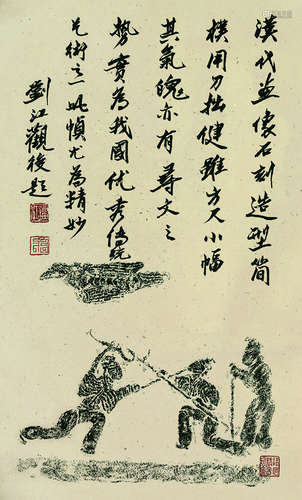 漢代画像石刻造型简
樸用刀拙健雖方尺小幅
其氣魄亦有尋丈之
勢實為我國优秀傳統
艺術之一此幀尤為精妙
劉江觀後題